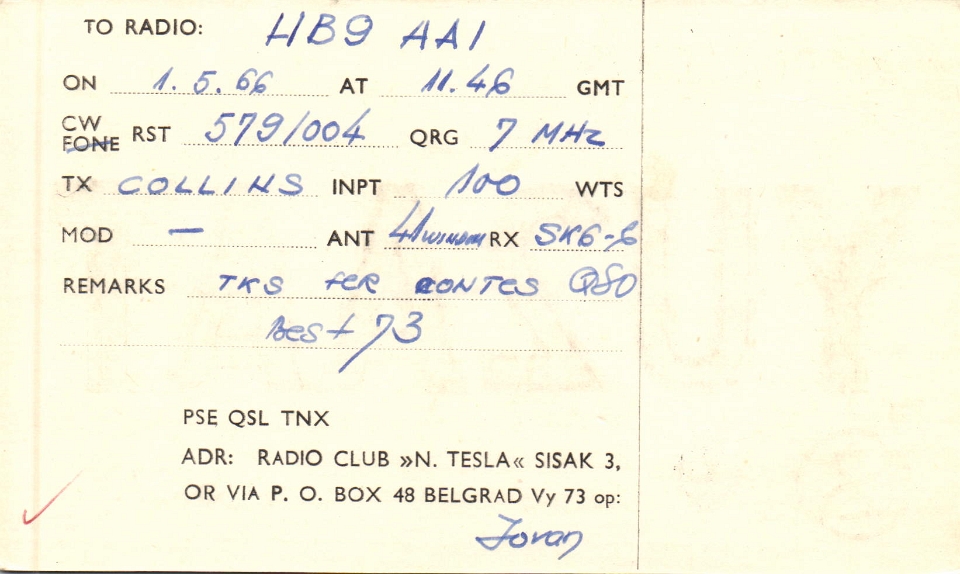 TO RADIO: HB9 AA1
ON 1. 5. 66 AT 11.46 GMT
CW
FONE RST 579/004 QRG 7 MHz
TX COLLINS INPT 100 WTS
MOD — ANT RX SK6-6
REMARKS TKS fER CONTES QSO
Best 73
PSE QSL TNX
ADR: RADIO CLUB »N. TESLA« SISAK 3,
OR VIA P. O. BOX 48 BELGRAD Vy 73 op:
Jovan